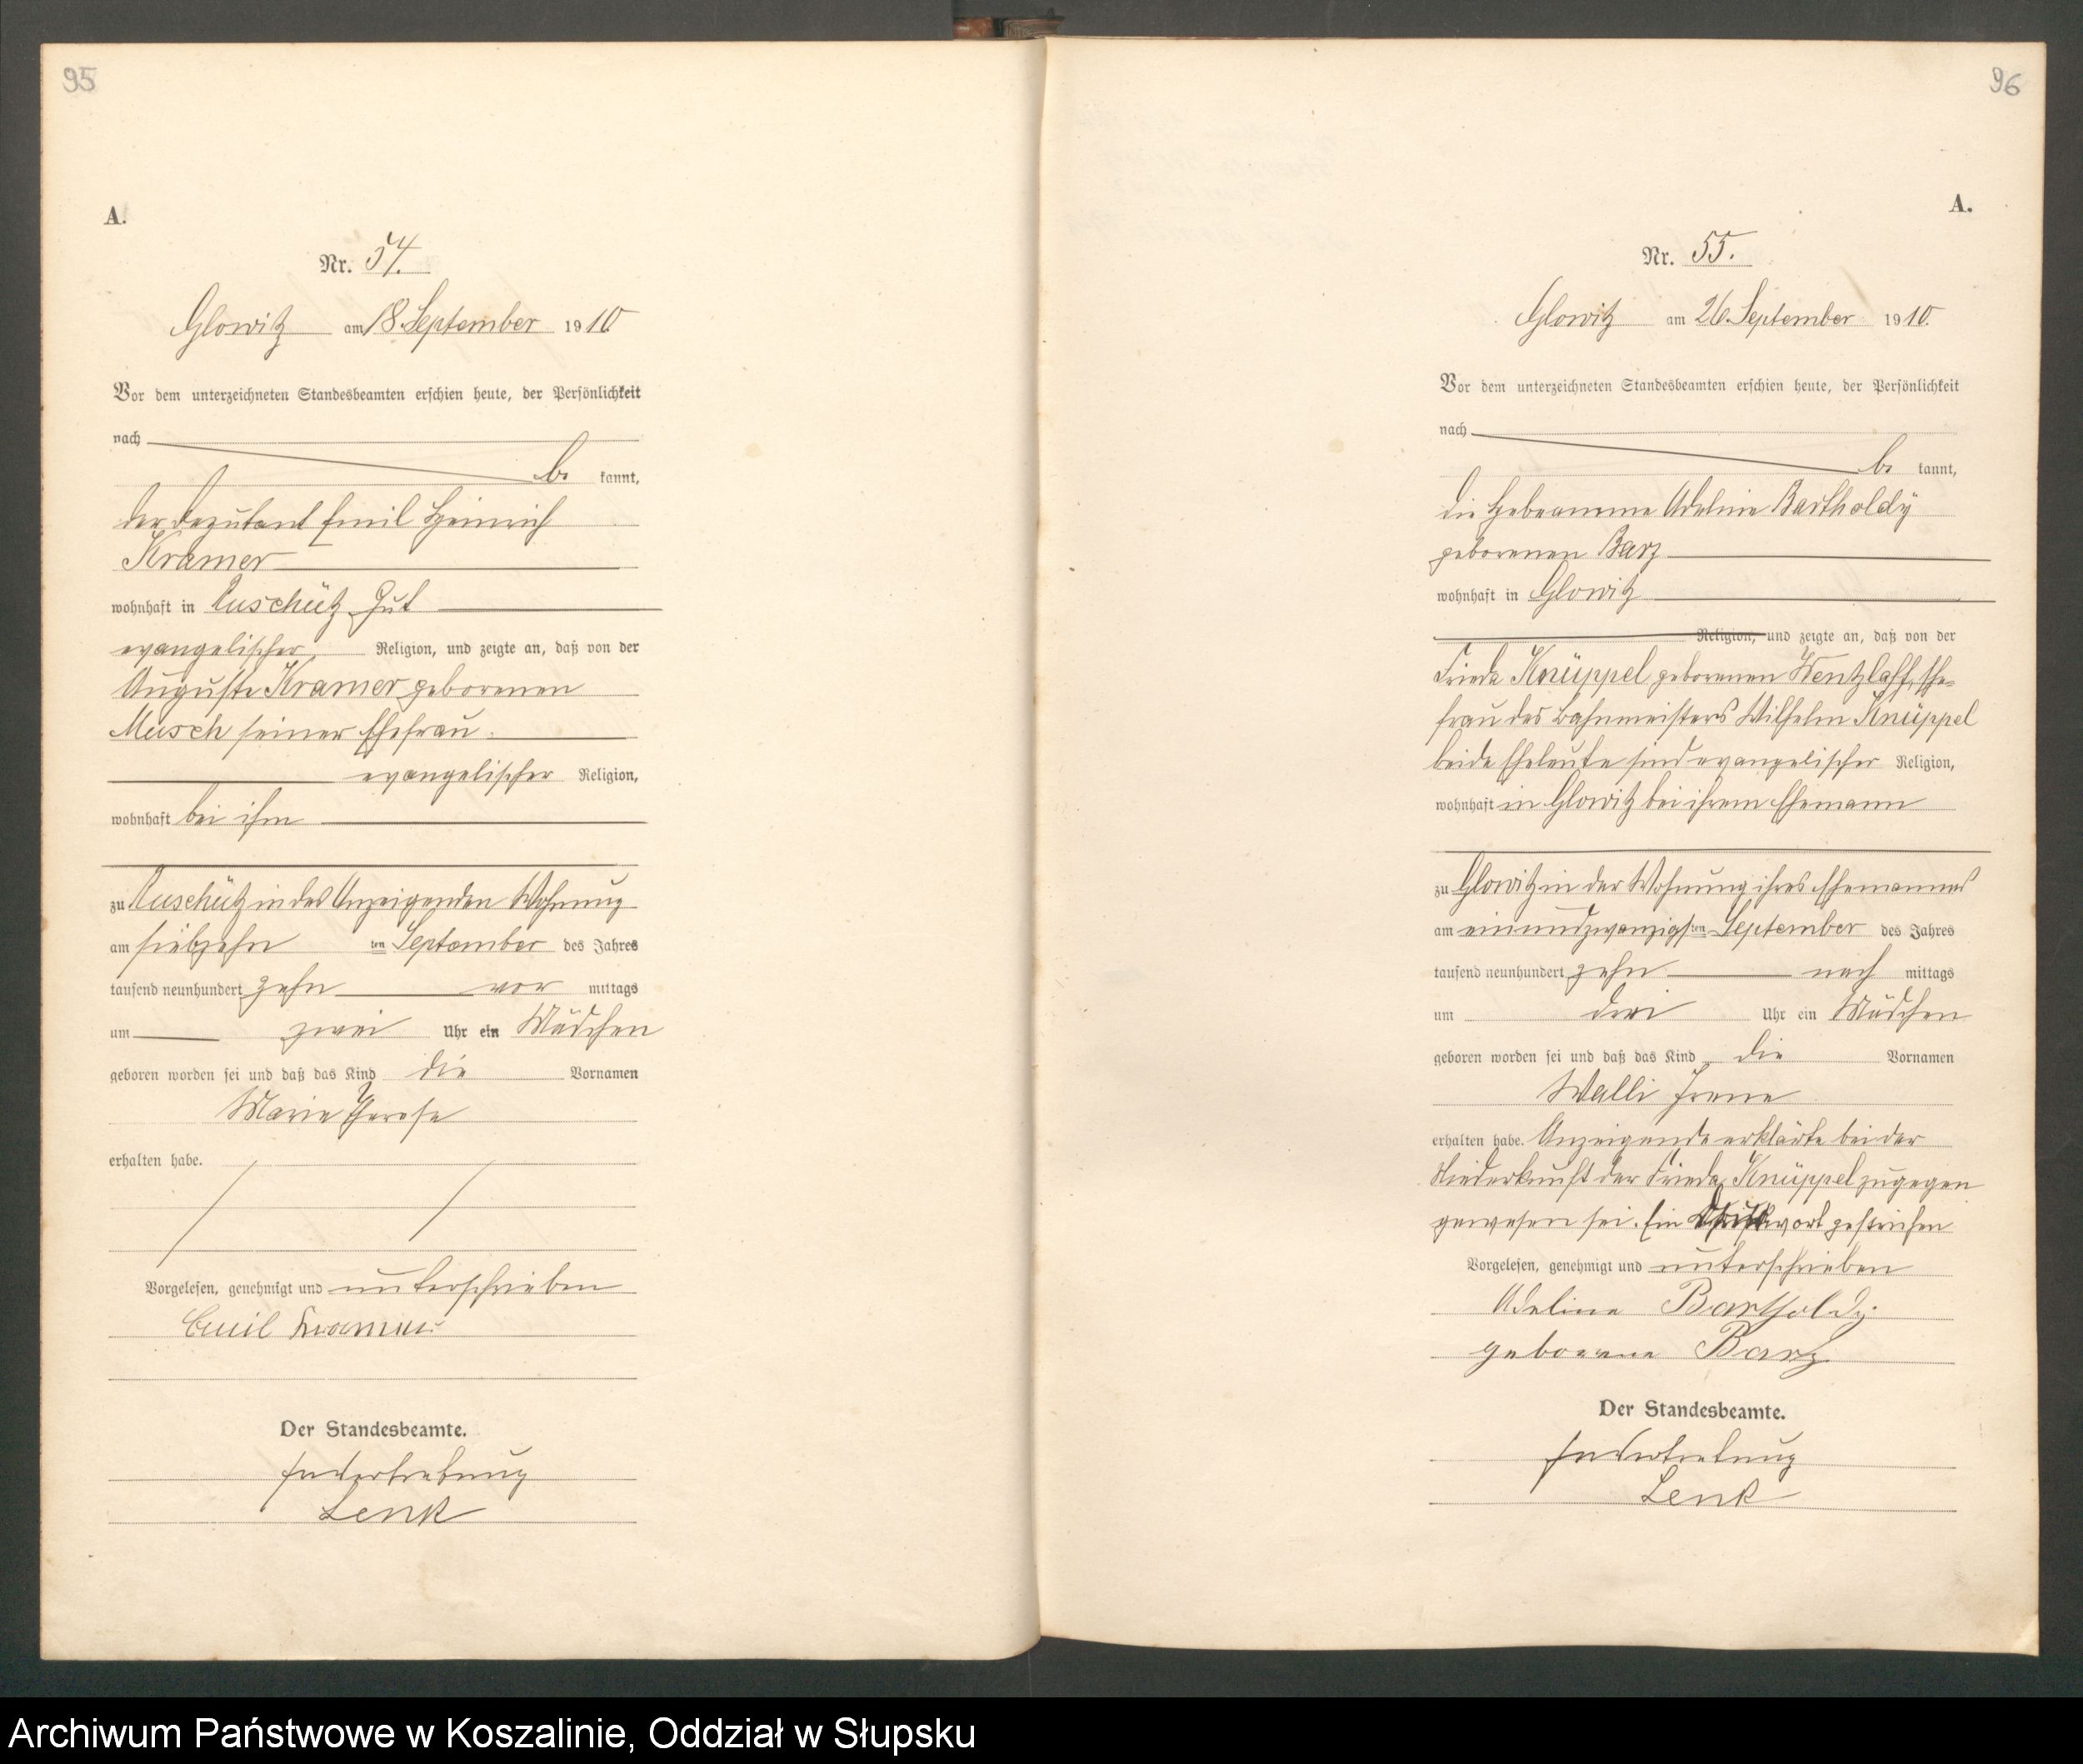 95
A.
Nr. 54.
Glowitz am 18. September 1910
Vor dem unterzeichneten Standesbeamten erschien heute, der Persönlichkeit
nach
be kannt,
der Deputant Emil Heinrich
Kramer
wohnhaft in Ruschütz Gut
evangelischer Religion, und zeigte an, daß von der
Auguste Kramer geborenen
Musch seiner Ehefrau
evangelischer Religion,
wohnhaft bei ihm
zu Ruschütz in des Anzeigenden Wohnung
am siebzehn ten September des Jahres
tausend neunhundert zehn vor mittags
um zwei Uhr ein Mädchen
geboren worden sei und daß das Kind die Vornamen
Marie Therese
erhalten habe.
Vorgelesen, genehmigt und unterschrieben
Emil Kramer
Der Standesbeamte.
In Vertretung
Lenk
96
A.
Nr. 55.
Glowitz am 26. September 1910.
Vor dem unterzeichneten Standesbeamten erschien heute, der Persönlichkeit
nach
be kannt,
die Hebeamme Adeline Bartholdÿ
geborenen Barz
wohnhaft in Glowitz
Religion, und zeigte an, daß von der
Frieda Knüppel geborenen Wentzlaff, Ehe-
frau des Bahnmeisters Wilhelm Knüppel
beide Eheleute sind evangelischer Religion,
wohnhaft in Glowitz bei ihrem Ehemann
zu Glowitz in der Wohnung ihres Ehemannes
am einundzwanzigsten September des Jahres
tausend neunhundert zehn nach mittags
um drei Uhr ein Mädchen
geboren worden sei und daß das Kind die Vornamen
Walli Irene
erhalten habe. Anzeigende erklärte bei der
Niederkunft der Frieda Knüppel zugegen
gewesen sei. Ein Druckwort gestrichen
Vorgelesen, genehmigt und unterschrieben
Adeline Bartholdÿ
geborene Barz
Der Standesbeamte.
In Vertretung
Lenk
Archiwum Państwowe w Koszalinie, Oddział w Słupsku